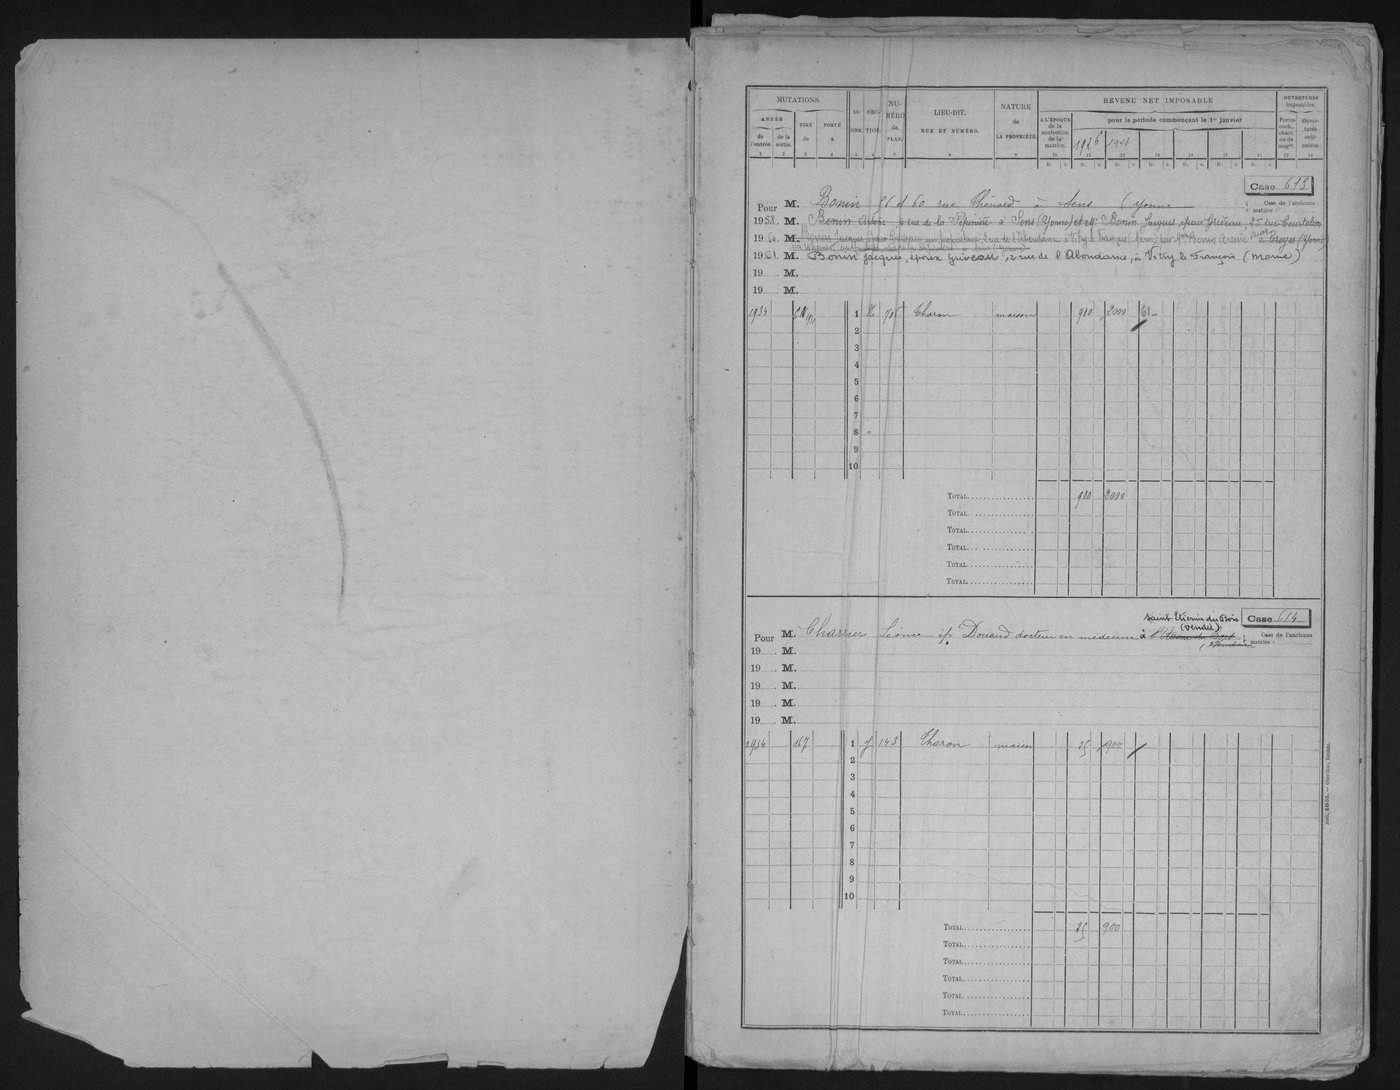 MUTATIONS.
ANNÉE
de l'entrée.
de la sortie.
TIRÉ de
PORTÉ à
LIGNE.
SECTION.
NUMÉRO de PLAN.
LIEU-DIT, RUE ET NUMÉRO.
NATURE de LA PROPRIÉTÉ.
REVENU NET IMPOSABLE
A L'ÉPOQUE de la confection de la matrice.
pour la période commençant le 1er janvier
1926 1943
OUVERTURES imposables.
Portes coch., chart. ou de magas.
Ouvertures ordinaires.
1 2 3 4 5 6 7 8 9 10 11 12 13 14 15 16 17 18
fr. c. fr. c. fr. c. fr. c. fr. c. fr. c. fr. c.
Case 613
Pour M. Bonin 56 et 60 rue Thénard à Sens (Yonne
Case de l'ancienne matrice :
1958. M. Bonin Arsène rue de la Pépinière à Sens (Yonne) et Mr Bonin Jacques époux Griveau, 25 rue Courtalon
1960. M. Bonin Jacques Griveau nu propriétaire, 2 rue de l'Abondance à Vitry le François (Marne) par Bonin Arsène à Troyes
1961. M. Bonin Jacques, époux Griveau, 2 rue de l'Abondance, à Vitry le François (Marne)
19 . M.
19 . M.
1934 1 705 Tharon maison 900 2000 61
2
3
4
5
6
7
8
9
10
TOTAL 900 2000
TOTAL
TOTAL
TOTAL
TOTAL
TOTAL
Saint Etienne du Bois (Vendée)
Case 614
Pour M. Charrier Léonce ép. Douaud docteur en médecine à
Case de l'ancienne matrice :
19 . M.
19 . M.
19 . M.
19 . M.
19 . M.
1934 167 1 J 143 Tharon maison 25 900
2
3
4
5
6
7
8
9
10
TOTAL 25 900
TOTAL
TOTAL
TOTAL
TOTAL
TOTAL